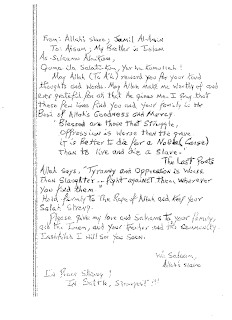 From: Allah's slave, Jamil Al-Amin
To: Ahsan, My Brother in Islam
As-Salaamu Alaikum,
May Allah (Ta'ala) reward you for your kind
thoughts and words. May Allah make me worthy of and
ever grateful for all that He gives me. I pray that
these few lines find you and your family in the
Best of Allah's Goodness and Mercy.
"Blessed are those that struggle,
Oppression is worse than the grave
it is Better to die for a Noble Cause
Than to live and die a slave."
The Last Poets
Allah Says, "Tyranny and Oppression is Worse
Than Slaughter... fight against them wherever
you find them"
Hold firmly to the Rope of Allah and keep your
Salat Strong.
Please give my love and Salaams to your family,
and the Community.
Inshallah I will see you soon.
Wa Salaam,
Allah's slave
In Your Struggle!